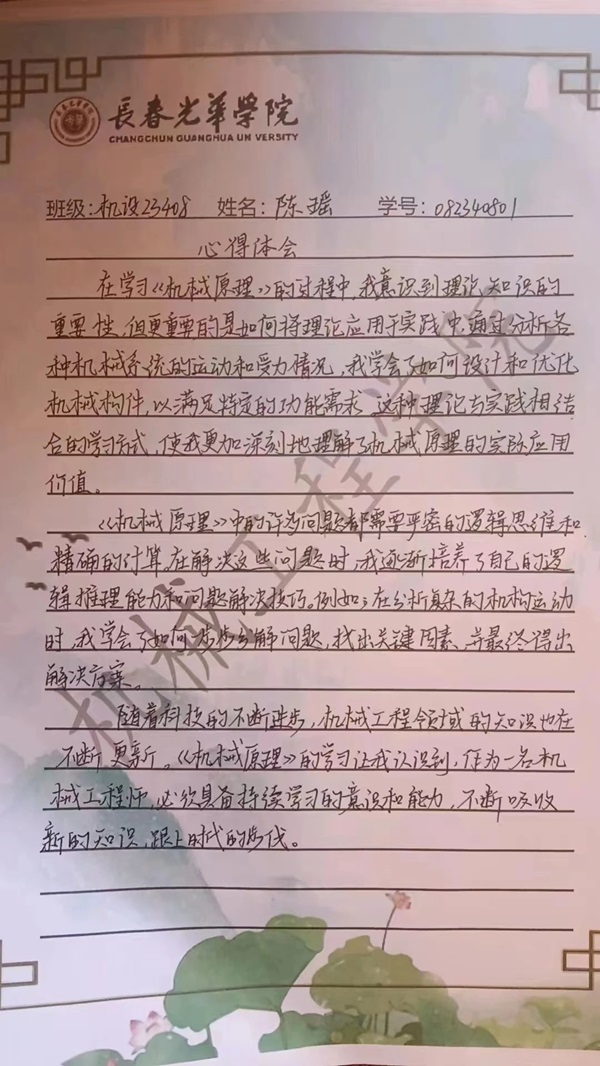 長春光華学院
CHANGCHUN GUANGHUA UN VERSITY
班级:机设23408 姓名:陈瑶 学号:082340801
心得体会
在学习《机械原理》的过程中,我意识到理论知识的
重要性,但更重要的是如何将理论应用于实践中.通过分析各
种机械系统的运动和受力情况,我学会了如何设计和优化
机械构件,以满足特定的功能需求.这种理论与实践相结
合的学习方式,使我更加深刻地理解了机械原理的实际应用
价值。
《机械原理》中的许多问题都需要严密的逻辑思维和
精确的计算.在解决这些问题时,我逐渐培养了自己的逻
辑推理能力和问题解决技巧。例如:在分析复杂的机构运动
时,我学会了如何一步步分解问题,找出关键因素,并最终得出
解决方案。
随着科技的不断进步,机械工程领域的知识也在
不断更新。《机械原理》的学习让我认识到,作为一名机
械工程师,必须具备持续学习的意识和能力,不断吸收
新的知识,跟上时代的步伐。
机械工程学院